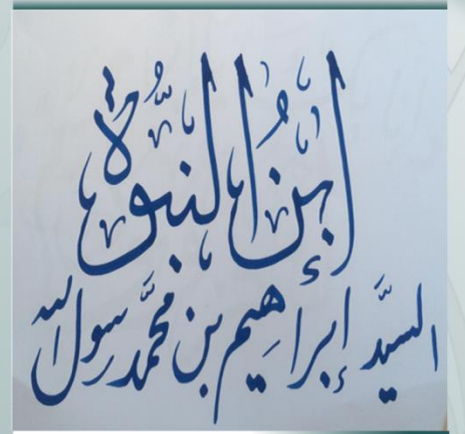 إبنُ النبوّة
السيَّد إبراهِيم بن محمَّد رسول الله